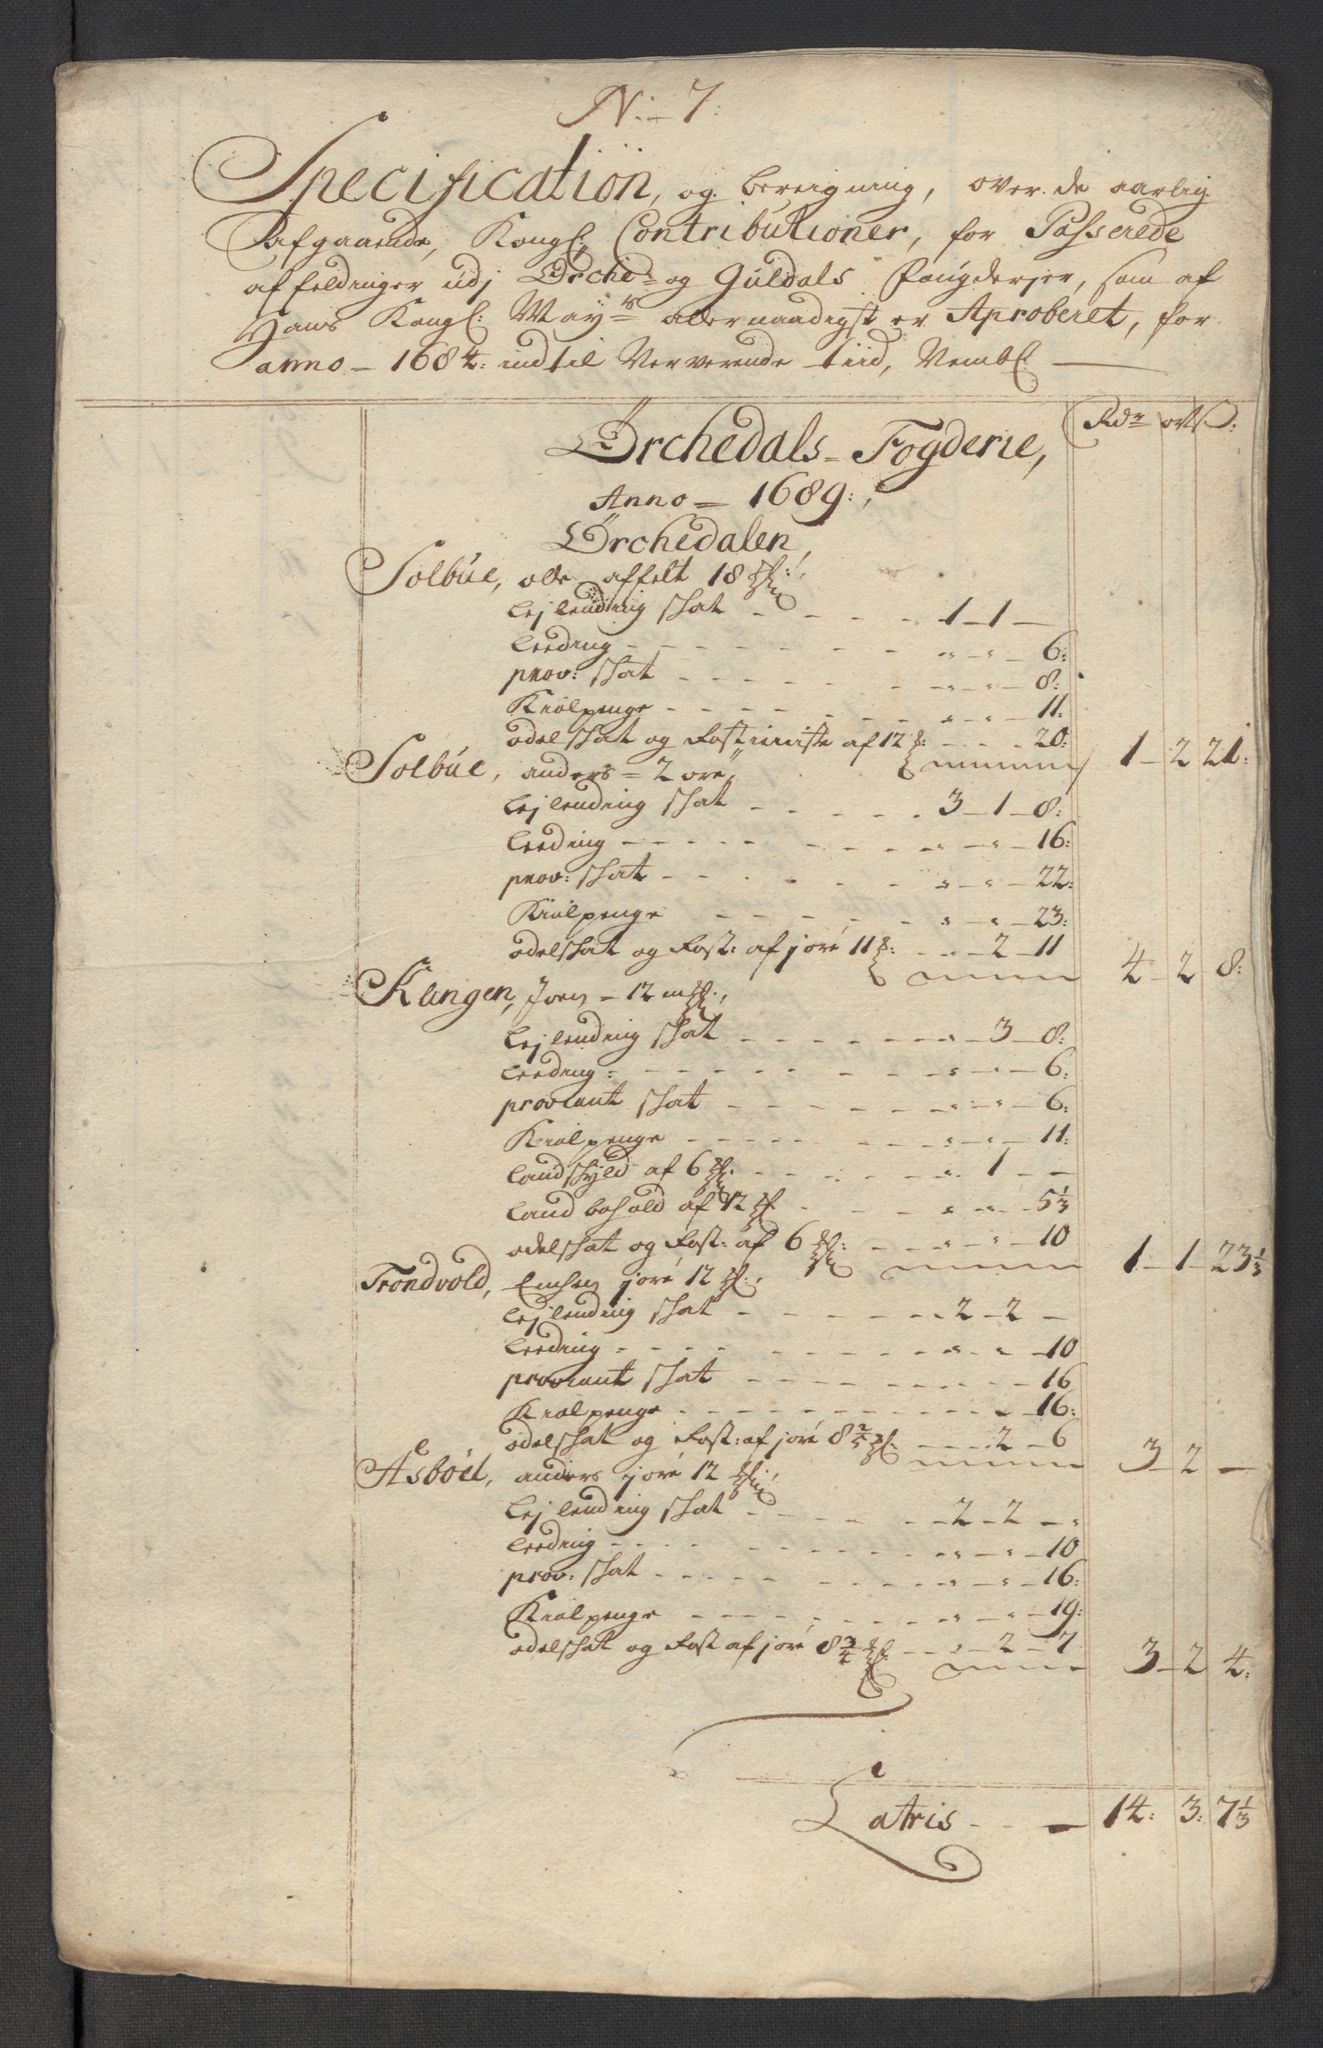 N: 7:
Specification, og bereigning, over de aarlig
afgaaende, Kongl: Contributioner, for Passerede
affeldinger udj Ørche- og Guldals Fougderjer, som af
Hans Kongl: Mayts allernaadigst er Aproberet, for
anno - 1684: indtil Nerverende tiid, Nembl:
Rdr ort ß:
Ørchedals - Fogderie,
Anno - 1689:,
Ørchedalen,
Solbue, olle affelt 18
Lejlending skat - - - 1 - 1 -
Leeding - - - 6:
prov: skat - - - 8:
Kiølpenge - - - 11:
odel skat og Rostieniste af 12 - - - 20:
1 - 2 21:
Solbue, anders - 2 øre,
Lejlending skat - - - 3 - 1 - 8:
Leeding - - - 16:
prov: skat - - - 22:
Kiølpenge - - - 23:
odelskat og Rost: af jøre 11 - - - 2 - 11
4 - 2 8:
Klingen, Joen - 12
Lejlending skat - - - 3 - 8:
Leeding - - - 6:
proviant skat - - - 6:
Kiølpenge - - - 11:
Landskyld af 6 - - - 1 - -
Land bohold af 12 - - - 5 1/3
odelskat og Rost: af 6 - - - 10
1 - 1 - 23 1/3
Trondvold, jøre 12
Lejlending skat - - - 2 - 2 -
Leeding - - - 10
proviant skat - - - 16
Kiølpenge - - - 16:
odelskat og Rost: af jøre 8 2/5 - - - 2 - 6
3 - 2 -
Asbøel, anders jøre 12
Lejlending skat - - - 2 - 2 -
Leeding - - - 10
prov: skat - - - 16:
Kiølpenge - - - 19:
odelskat og Rost af jøre 8 3/4 - - - 2 - 7
3 - 2 4:
Latris - - - 14: 3: 7 1/3